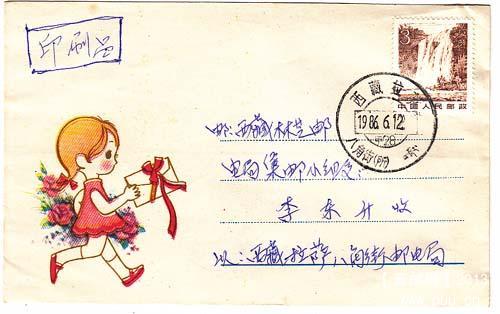 印刷品
3
中国人民邮政
西藏 拉
1986.6.12
20
八角街(所)
邮:西藏林芝邮
电局集邮小组交:
李东升收
从:西藏拉萨八角街邮电局